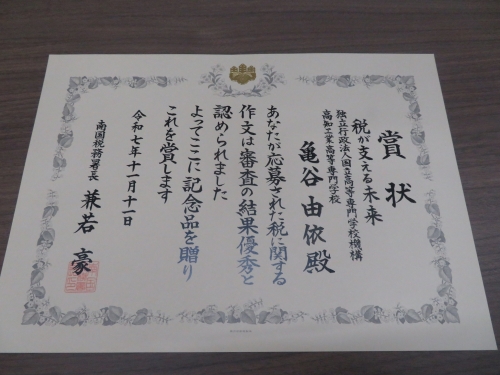 賞状
税が支える未来
独立行政法人国立高等専門学校機構
高知工業高等専門学校
亀谷由依殿
あなたが応募された税に関する
作文は審査の結果優秀と
認められました
よってここに記念品を贈り
これを賞します
令和七年十一月十一日
南国税務署長
兼若豪